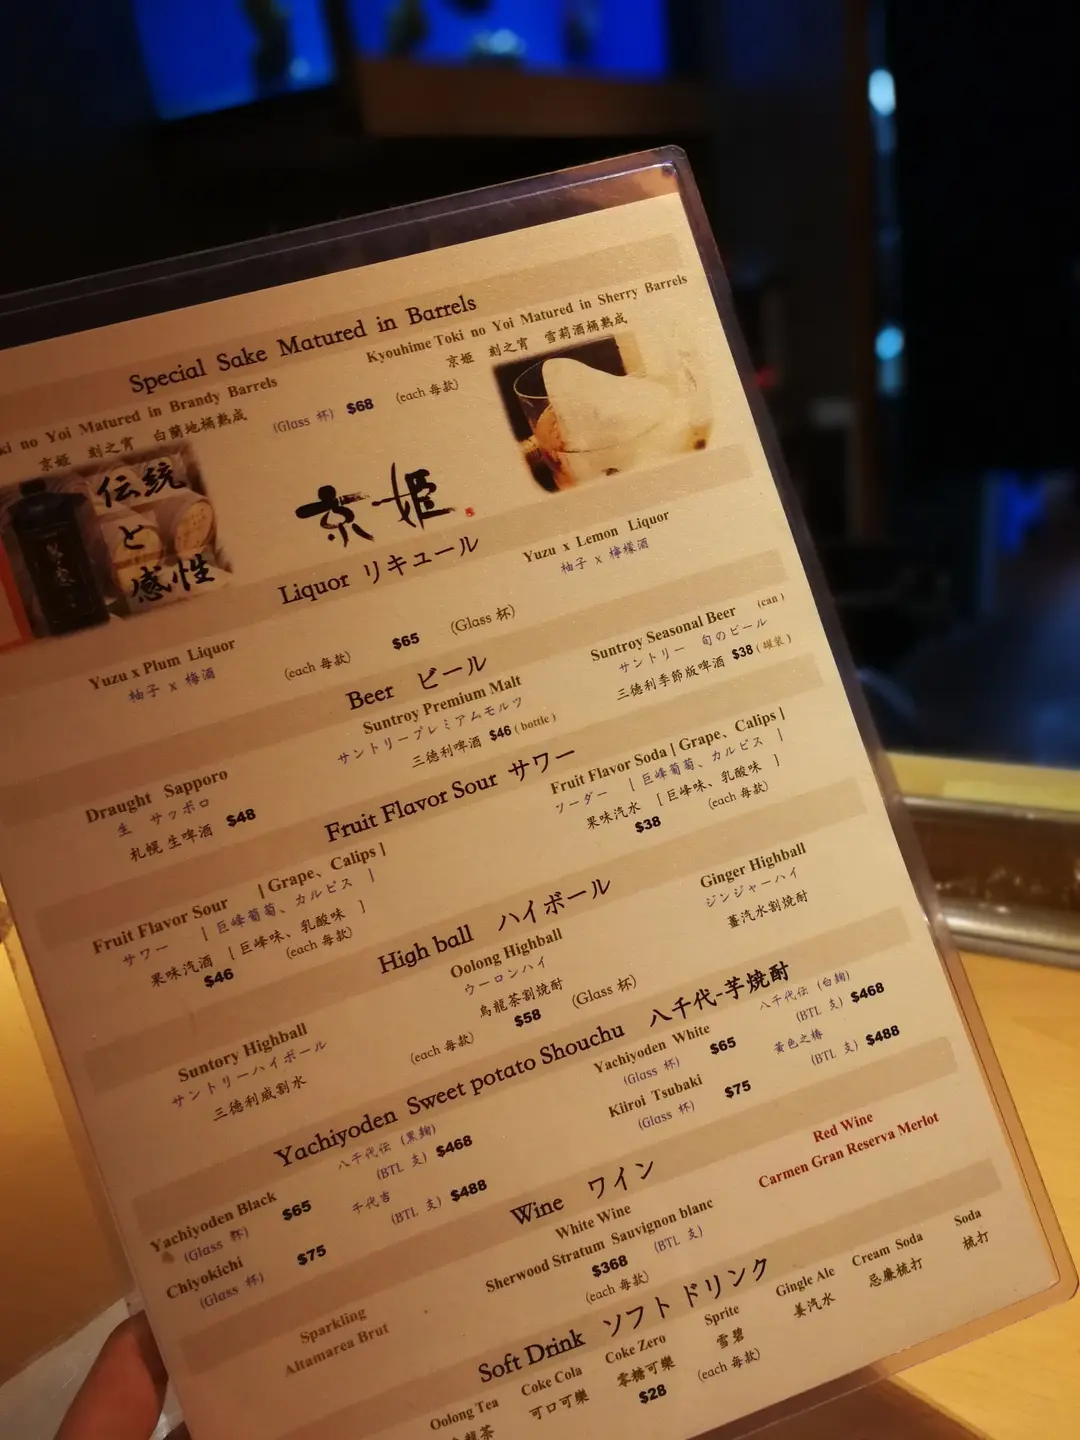 Special Sake Matured in Barrels
no Yoi Matured in Brandy Barrels
京姫 刻之宵 白蘭地桶熟成
Kyouhime Toki no Yoi Matured in Sherry Barrels
京姫 刻之宵 雪莉酒桶熟成
(Glass 杯) $68 (each 每款)
伝統
と
感性
京姫
Liquor リキュール
Yuzu x Plum Liquor
柚子 x 梅酒
Yuzu x Lemon Liquor
柚子 x 檸檬酒
(each 每款) $65 (Glass 杯)
Beer ビール
Draught Sapporo
生 サッポロ
札幌生啤酒 $48
Suntroy Premium Malt
サントリープレミアムモルツ
三德利啤酒 $46 ( bottle )
Suntroy Seasonal Beer (can)
サントリー 旬のビール
三德利季節版啤酒 $38 ( 罐裝 )
Fruit Flavor Sour サワー
Fruit Flavor Sour | Grape、Calips |
サワー | 巨峰葡萄、カルピス |
果味汽酒 [ 巨峰味、乳酸味 ]
$46 (each 每款)
Fruit Flavor Soda | Grape、Calips |
ソーダー | 巨峰葡萄、カルピス |
果味汽水 [ 巨峰味、乳酸味 ]
$38 (each 每款)
High ball ハイボール
Suntory Highball
サントリーハイボール
三德利威割水
Oolong Highball
ウーロンハイ
烏龍茶割焼酎
Ginger Highball
ジンジャーハイ
薑汽水割焼酎
(each 每款) $58 (Glass 杯)
Yachiyoden Sweet potato Shouchu 八千代-芋焼酎
Yachiyoden Black
(Glass 杯) $65
八千代伝 (黒麹)
(BTL 支) $468
Yachiyoden White
(Glass 杯) $65
八千代伝 (白麹)
(BTL 支) $468
Chiyokichi
(Glass 杯) $75
千代吉
(BTL 支) $488
Kiiroi Tsubaki
(Glass 杯) $75
黃色之椿
(BTL 支) $488
Wine ワイン
Sparkling
Altamarea Brut
White Wine
Sherwood Stratum Sauvignon blanc
Red Wine
Carmen Gran Reserva Merlot
$368 (BTL 支)
(each 每款)
Soft Drink ソフトドリンク
Oolong Tea
龍茶
Coke Cola
可口可樂
Coke Zero
零糖可樂
Sprite
雪碧
Gingle Ale
薑汽水
Cream Soda
忌廉梳打
Soda
梳打
$28 (each 每款)